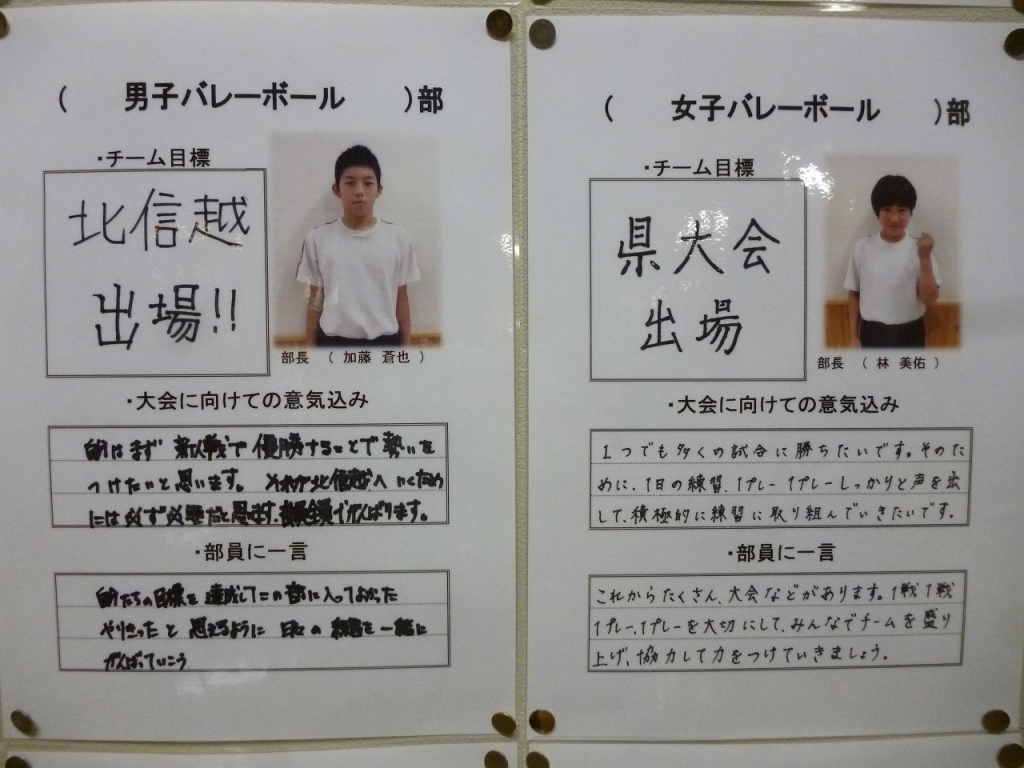 ( 男子バレーボール )部
・チーム目標
北信越
出場!!
部長 ( 加藤 蒼也 )
・大会に向けての意気込み
的はまず 新人戦で 優勝することで 勢いを
つけたいと思います。 それが北信越へ いくため
には必ず必要だと思います。部員全員でがんばります。
・部員に一言
的たちの目標を 達成してこの部に入ってよかった
やりきったと 思えるように 日々の 練習を 一緒に
がんばっていこう
( 女子バレーボール )部
・チーム目標
県大会
出場
部長 ( 林 美佑 )
・大会に向けての意気込み
1つでも多くの試合に勝ちたいです。そのた
めに、1日の練習、1プレー1プレーしっかりと声を出
して、積極的に練習に取り組んでいきたいです。
・部員に一言
これからたくさん、大会などがあります。1戦1戦
1プレー、1プレーを大切にして、みんなでチームを盛り
上げ、協力して力をつけていきましょう。